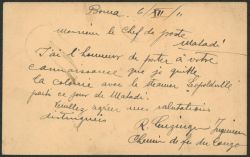 Boma 6/XII/11
Monsieur le Chef de poste
Matadi
J'ai l'honneur de porter à votre
connaissance que je quitte
la colonie avec le steamer Léopoldville
parti ce jour de Matadi.
Veuillez agréer mes salutations
distinguées
R.
Chemin de fer du Congo